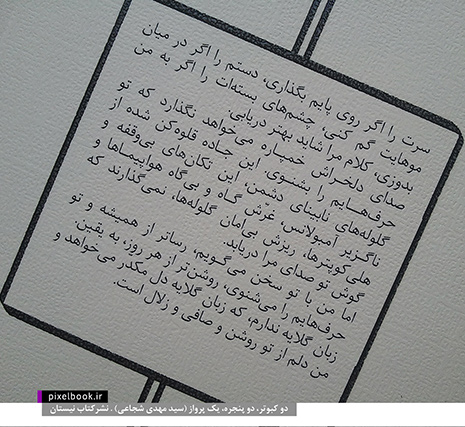 سرت را اگر روی پایم بگذاری، دستم را اگر در میان
موهایت گم کنی، چشم‌های بسته‌ات را اگر به من
بدوزی، کلام مرا شاید بهتر دریابی.
صدای دلخراش خمپاره می‌خواهد نگذارد که تو
حرف‌هایم را بشنوی. این جاده قلوه‌کن شده از
گلوله‌های نابینای دشمن، این تکان‌های بی‌وقفه و
ناگزیر آمبولانس، غرّش گاه و بی‌گاه هواپیماها و
هلی‌کوپترها، ریزش بی‌امان گلوله‌ها، نمی‌گذارند که
گوش تو صدای مرا دریابد.
اما من با تو سخن می‌گویم، رساتر از همیشه و تو
حرف‌هایم را می‌شنوی، روشن‌تر از هر روز، به یقین.
زبان گلایه ندارم، که زبان گلایه دل مکدر می‌خواهد و
من دلم از تو روشن و صافی و زلال است.
pixelbook.ir
دو کبوتر، دو پنجره، یک پرواز (سید مهدی شجاعی) . نشر کتاب نیستان